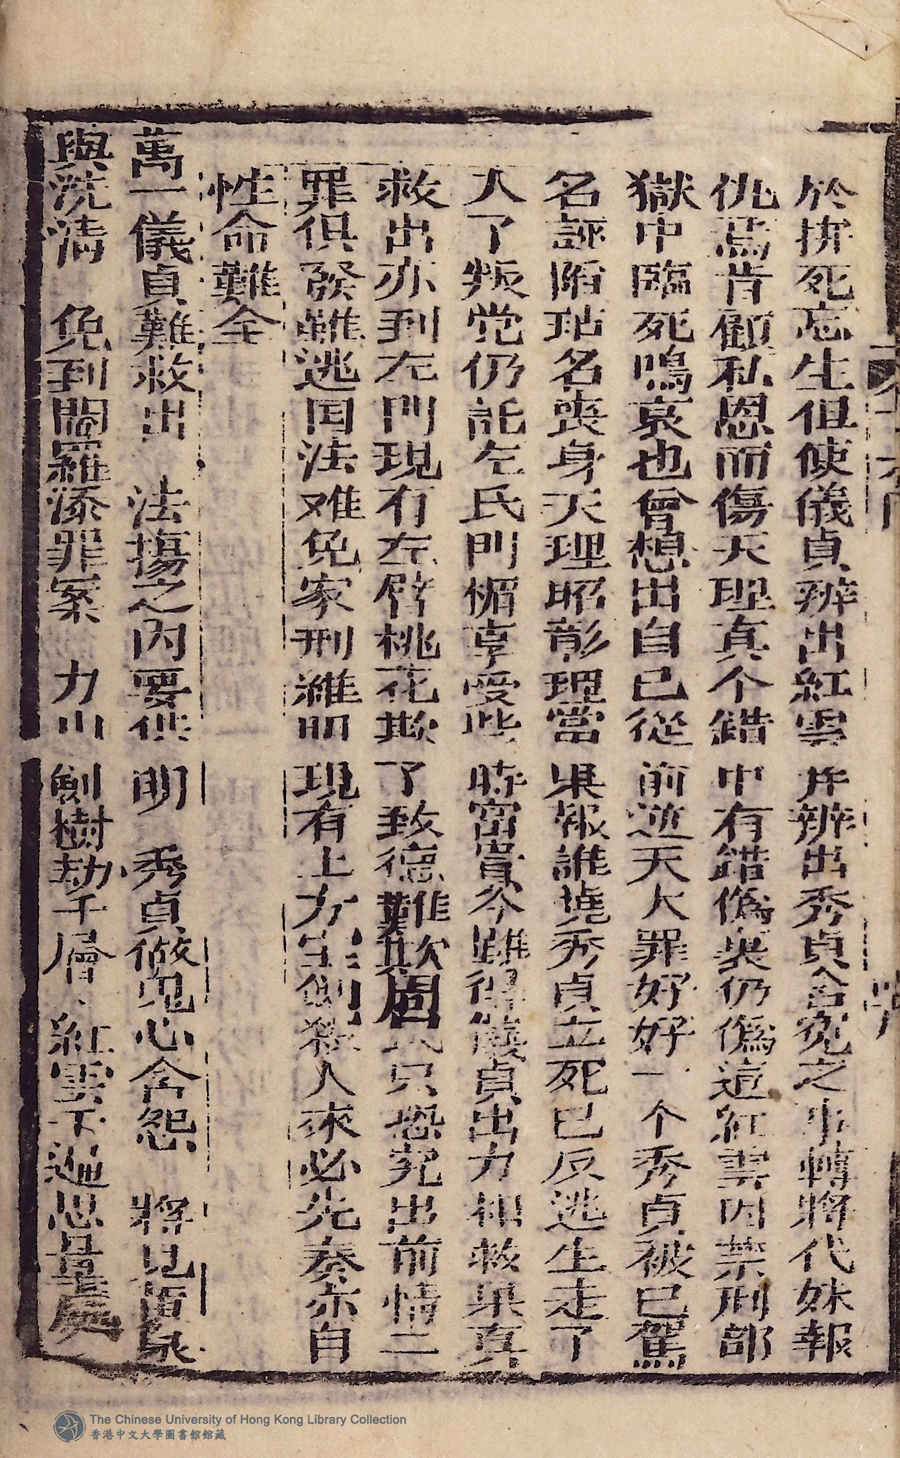 於拚死忘生但使儀貞辨出紅雲并辨出秀貞含冤之事轉將代妹報
仇焉肯顧私恩而傷天理真个錯中有錯偽裏仍偽這紅雲因禁刑部
獄中臨死鳴哀也曾想出自已從前逆天大罪好好一个秀貞被已駕
名誣陷玷名喪身天理昭彰理當果報誰堯秀貞立死已反逃生走了
人了叛党仍託左氏門楣享受些時富貴今雖得儀貞出力相救果真
救出亦到左門現有左臂桃花欺了致德難欺周氏只恐究出前情二
罪俱發難逃国法难免家刑維明現有上方宝劍殺人來必先奏亦自
性命難全
萬一儀貞難救出 法塲之內要供明 秀貞做鬼心含怨 將見黃泉
與洗清 免到閻羅添罪案 力山劍樹劫千層 紅雲不迴思量處
The Chinese University of Hong Kong Library Collection
香港中文大學圖書館館藏